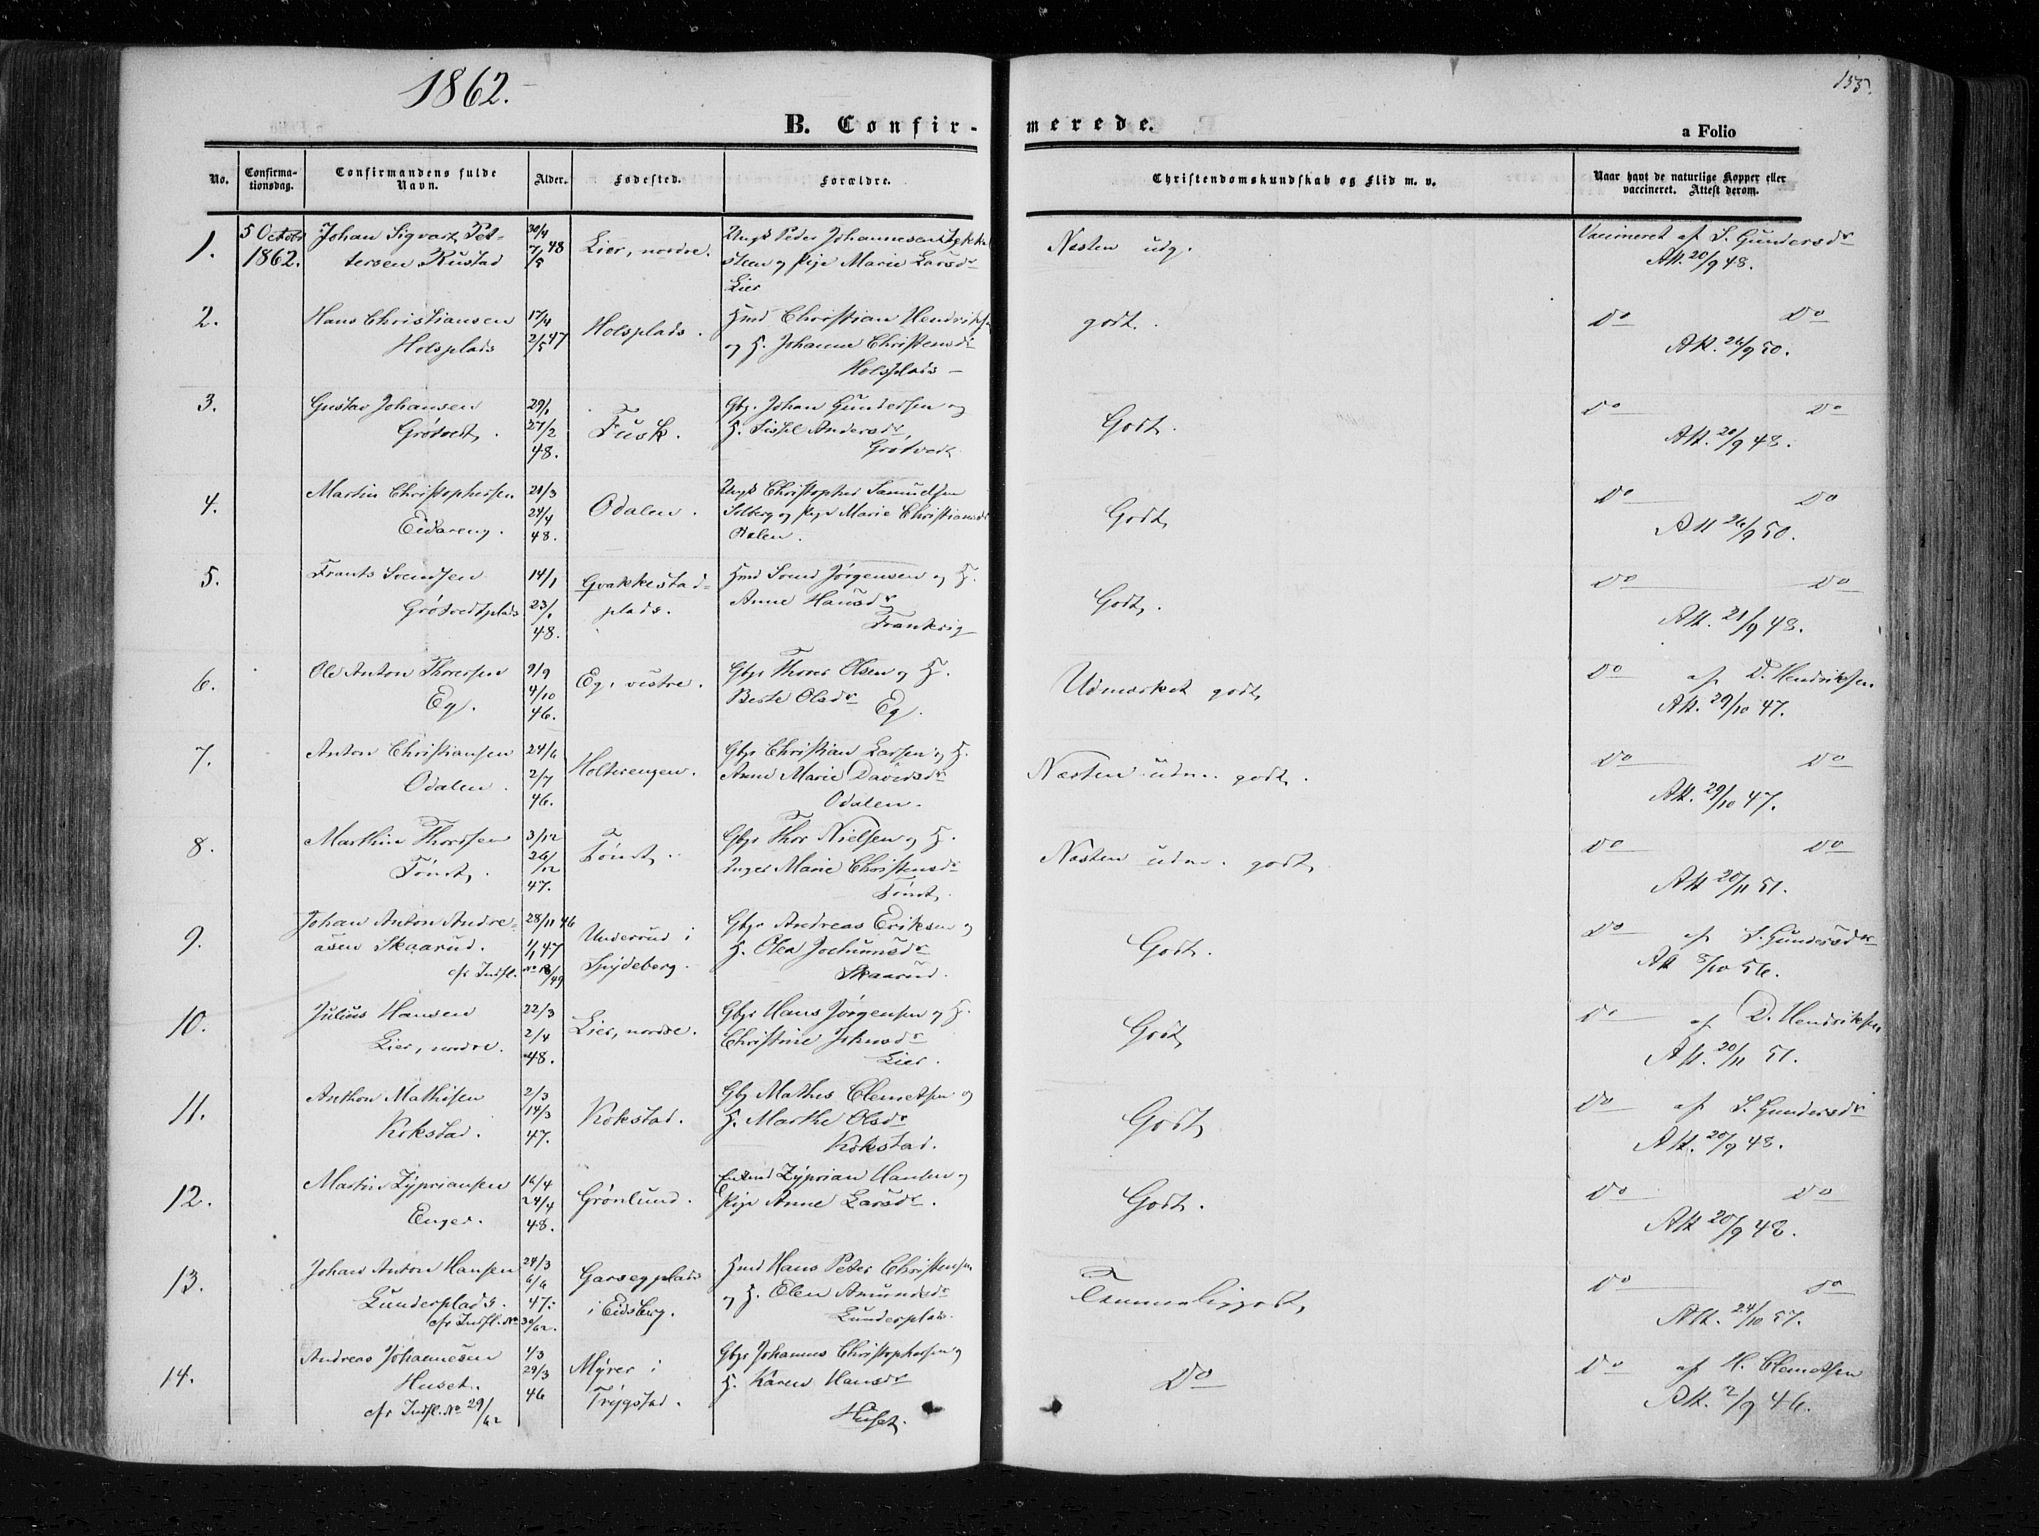 1862.
155.
B. Confir-
merede.
a Folio
No.
Confirma-
tionsdag.
Confirmandens fulde
Navn.
Alder.
Fødested.
Forældre.
Christendomskundskab og Flid m. v.
Naar havt de naturlige Kopper eller
vaccineret. Attest derom.
1.
5 Octobr
1862.
Johan Sigvart Pet-
tersen Rustad
30/4
7/5 48
Lier, nordre.
Ungk Peder Johannesen
steen og Pige Marie Larsdr
Lier
Næsten udg.
Vaccineret af S. Gundersdr
Att. 20/9 48.
2.
Hans Christiansen
Holsplads
17/4
2/5 47
Holsplads.
Hmd Christian Hendriksen
og H. Johanne Christensdr
Holsplads
godt.
Do Do
Att. 26/9 50.
3.
Gustav Johansen
Grøtvedt,
29/1
27/2
48.
Fusk.
Gbr. Johan Gundersen og
H. Sissel Andersdr,
Grøtvedt
Godt.
Do Do
Att. 20/9 48.
4.
Martin Christophersen
Eidareng.
21/3
24/4
48.
Odalen.
Ungk Christopher Samuelsen
Solberg og Pige Marie Christiansdr
Odalen.
Godt,
Do Do
Att 26/9 50.
5.
Frants Svendsen
Grøtvedtplads
14/1
23/1
48.
Gvakkestad-
plads.
Hmd Svend Jørgensen og H.
Anne Hansdr
Frankrig
Godt.
Do Do
Att. 21/9 48.
6.
Ole Anton Thoresen
Eg.
9/9
4/10
46.
Eg, vestre.
Gbr Thore Olsen og H.
Berte Olsdr Eg.
Udmærket godt,
Do af D. Hendriksen
Att. 29/10 47.
7.
Anton Christiansen
Odalen.
24/6
2/7
46.
Holterengen.
Gbr Christian Larsen og H.
Anne Marie Davidsdr
Odalen.
Næsten udm. godt.
Do Do
Att. 29/10 47.
8.
Marthin Thorsen
Tønst,
3/12
26/12
47.
Tønst.
Gbr Thor Nielsen og H.
Inger Marie Christensdr
Tønst,
Næsten udm. godt,
Do Do
Att 20/11 51.
9.
Johan Anton Andre-
asen Skaarud.
cfr Indfl.
28/11 46
1/1 47
No 18/49
Underrud i
Spydeberg.
Gbr Andreas Eriksen og
H. Olea Jochumsdr
Skaarud.
Godt.
Do af S. Gundersdr
Att 5/10 56.
10.
Julius Hansen
Lier, nordre.
22/3
2/4
48.
Lier, nordre.
Gbr Hans Jørgensen og H.
Christine Johnsdr
Lier.
Godt,
Do af D. Hendriksen
Att. 20/11 51.
11.
Anthon Mathisen
Kokstad.
2/3
14/3
47.
Kokstad.
Gbr Mathes Clemetsen og
H. Marthe Olsdr
Kokstad.
Godt,
Do af S. Gundersdr
Att. 20/9 48.
12.
Martin Zypriansen
Enger.
16/4
24/4
48.
Grønlund.
Enkmd Zyprian Hansen og
Pige Anne Larsdr.
Godt.
Do Do
Att 20/9 48.
13.
Johan Anton Hansen
Lunderplads.
cfr Indfl. No
24/3
6/6
47.
30/62
Garsegplads
i Eidsberg.
Hmd Hans Peter Christensen
og H. Elen Amundsdr
Lunderplads.
Temmelig godt,
Do Do
Att. 24/10 57.
14.
Andreas Johannesen
Huset.
cfr Indfl. No 29/62
4/3
29/3
46
Myrer i
Trygstad.
Gbr Johannes Christophersen og
H. Karen Hansdr
Huset.
Do
Do af H. Clemetsen
Att. 2/9 46.